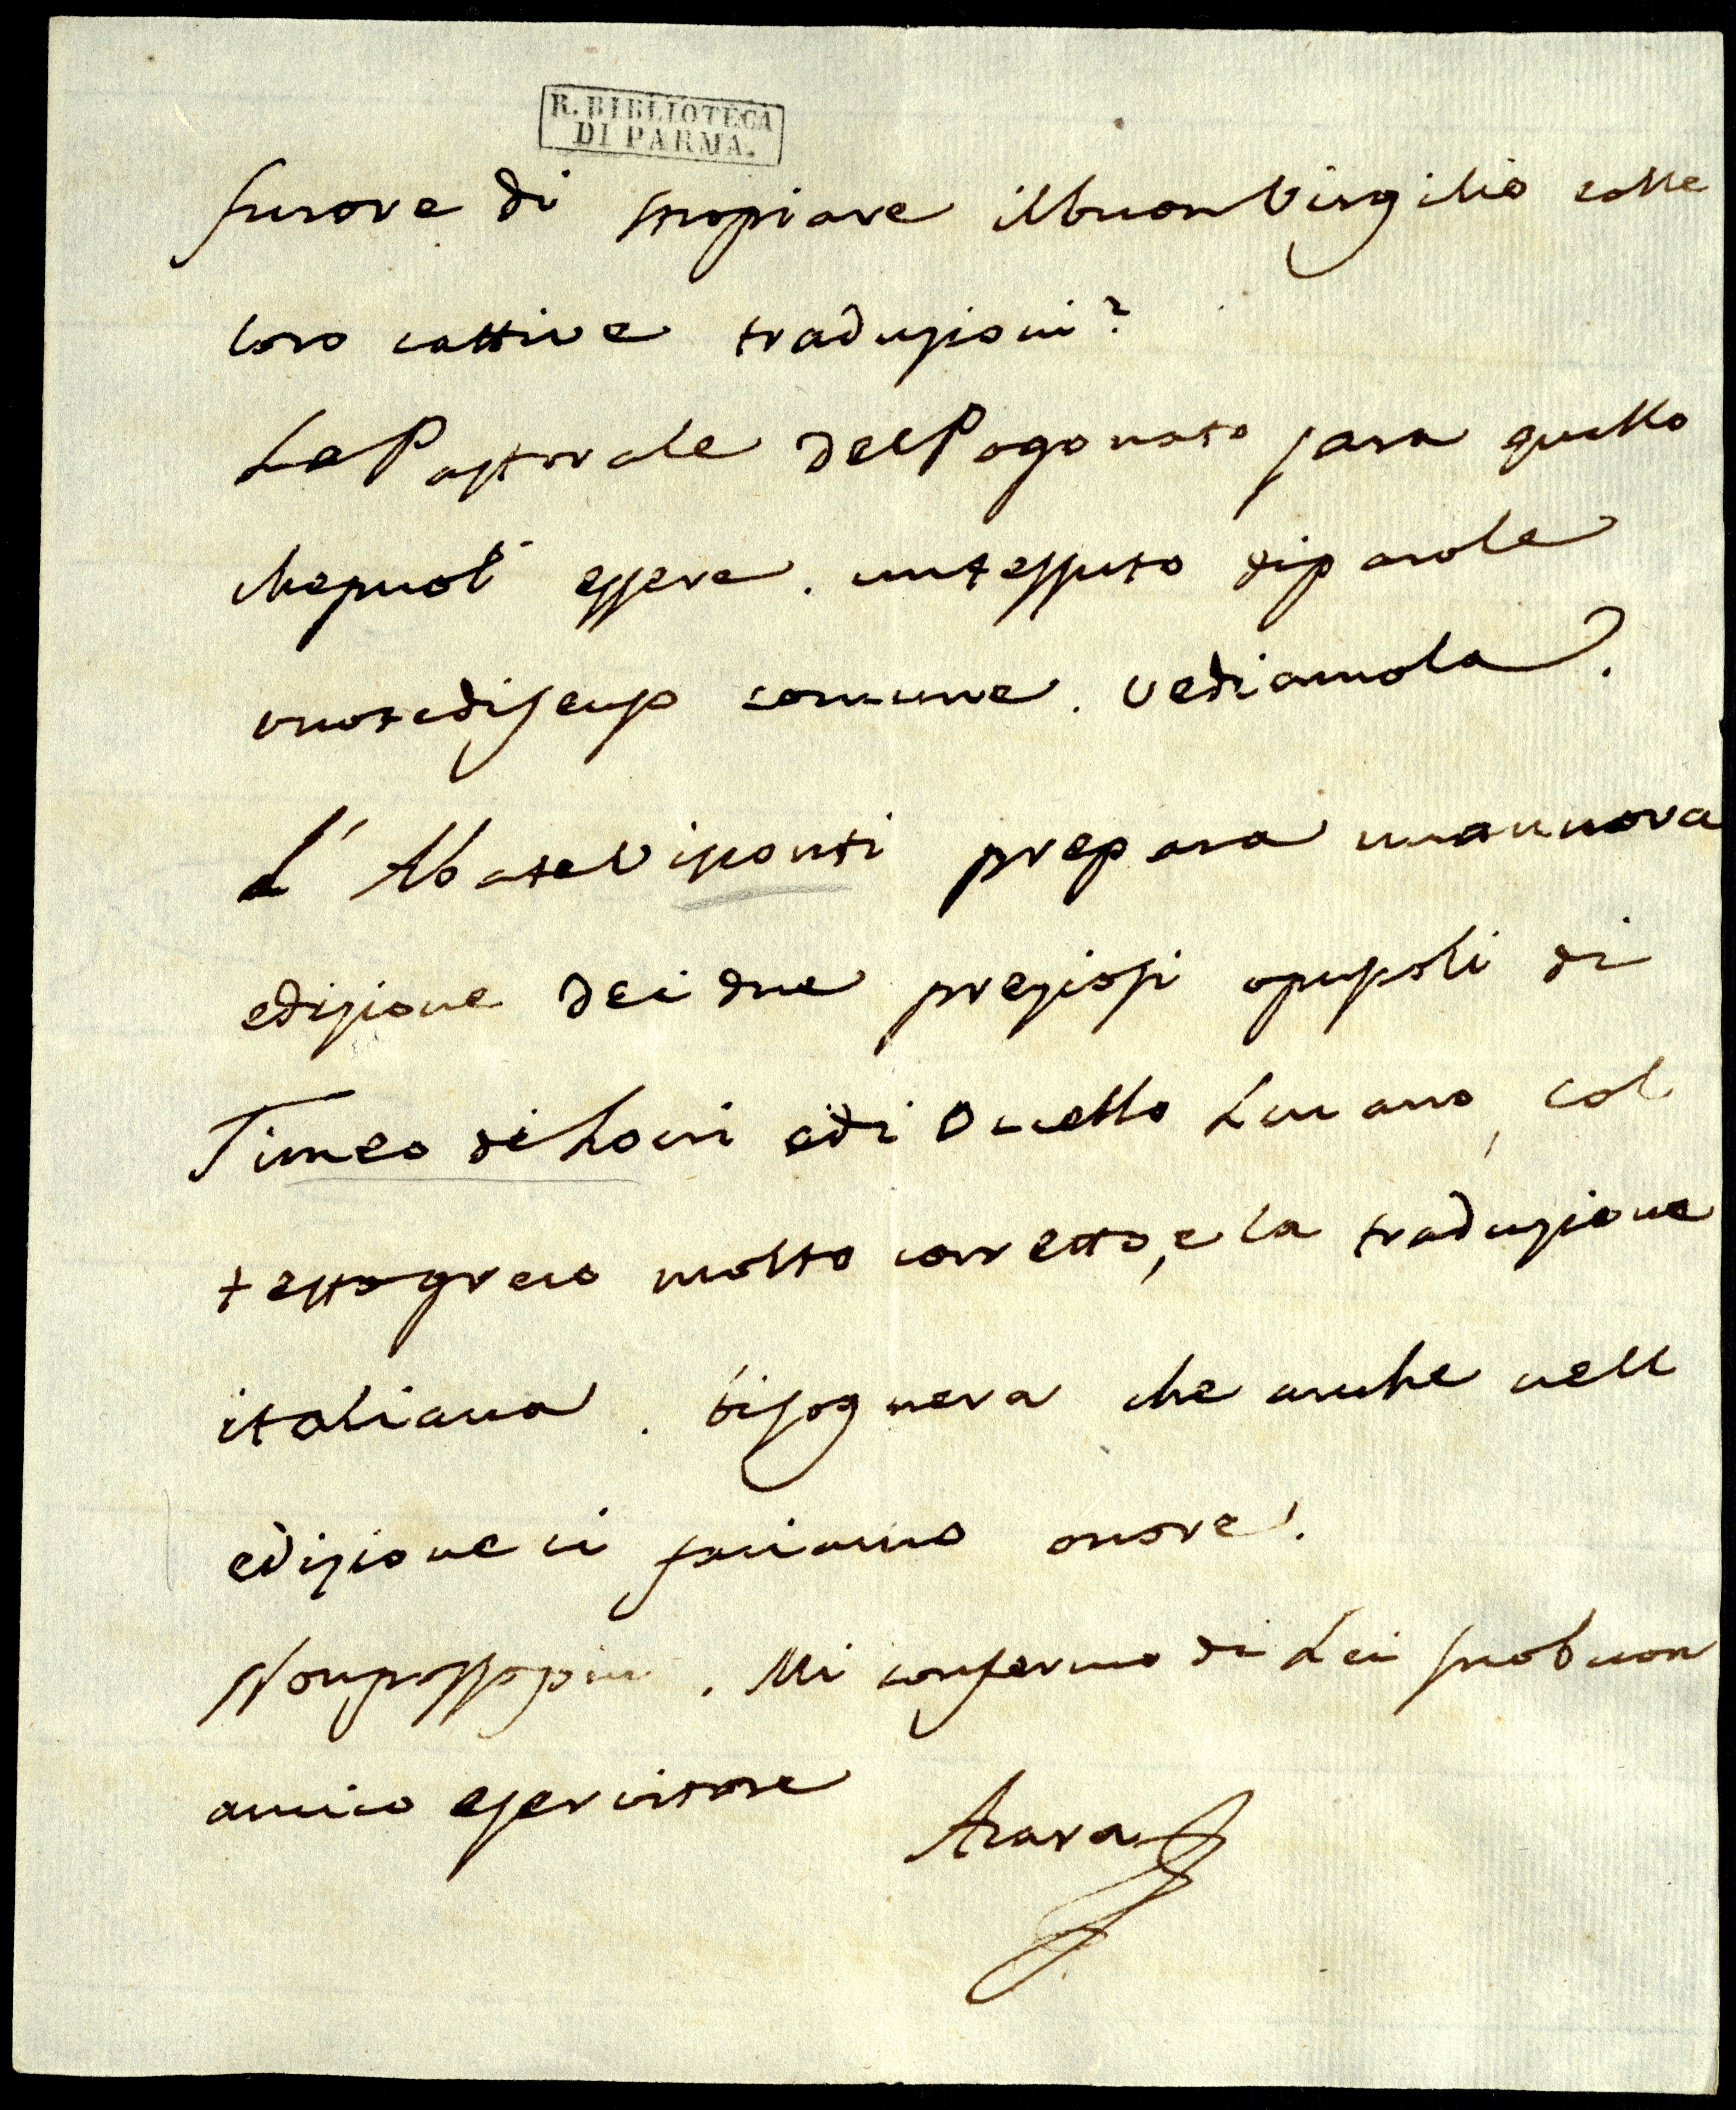 R. BIBLIOTECA
DI PARMA.
furore di stropiare il buon Virgilio colle
loro cattive traduzioni?
La Pastorale del Pogonato sara quello
che puol essere. un tessuto di parole
vuote di senso comune. vediamola.
L'Abate Visconti prepara una nuova
edizione dei due preziosi opuscoli di
Timeo di Locri e di Ocello Lucano, col
testo greco molto corretto, e la traduzione
italiana. bisognera che anche nell
edizione ci facciamo onore.
Non posso piu. Mi confermo di Lei suo buon
amico e servitore
Azara